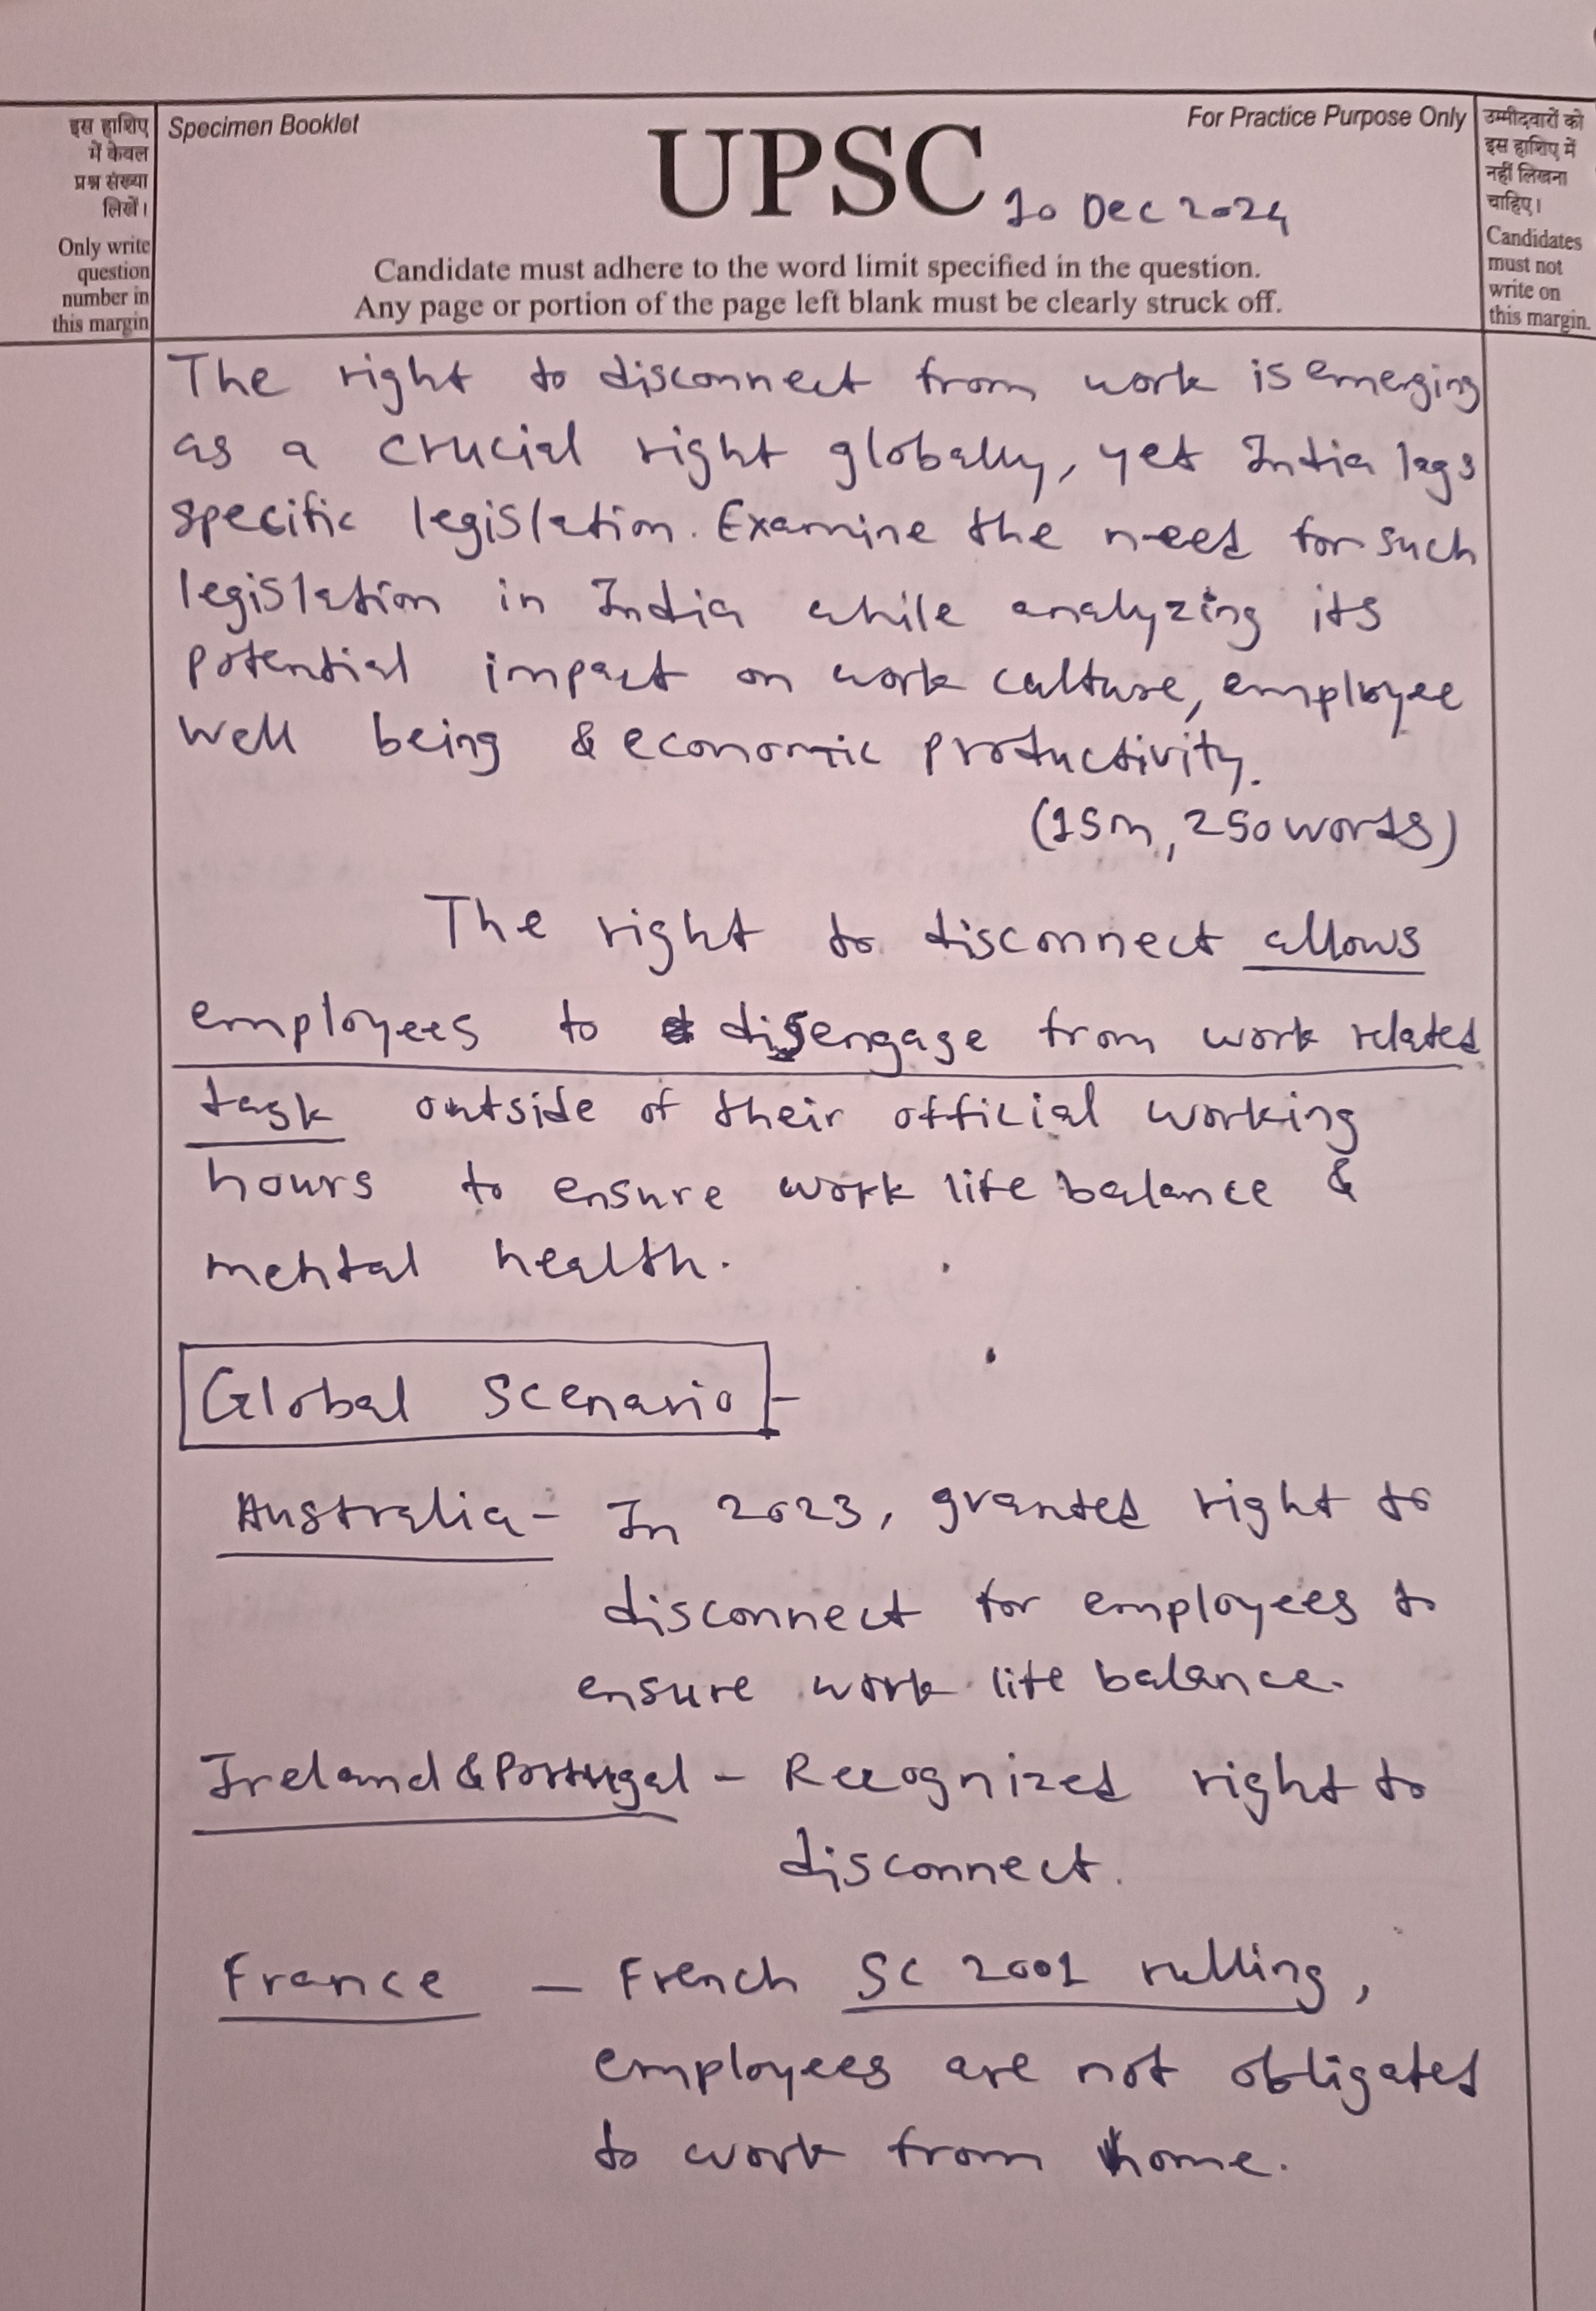 इस हाशिए
में केवल
प्रश्न संख्या
लिखें।
Only write
question
number in
this margin
Specimen Booklet
For Practice Purpose Only
UPSC
10 Dec 2024
Candidate must adhere to the word limit specified in the question.
Any page or portion of the page left blank must be clearly struck off.
उम्मीदवारों को
इस हाशिए में
नहीं लिखना
चाहिए।
Candidates
must not
write on
this margin.
The right to disconnect from work is emerging
as a crucial right globally, yet India lags
specific legislation. Examine the need for such
legislation in India while analyzing its
potential impact on work culture, employee
well being & economic productivity.
(15m, 250 words)
The right to disconnect allows
employees to disengage from work related
task outside of their official working
hours to ensure work life balance &
mental health.
Global Scenario -
Australia - In 2023, granted right to
disconnect for employees to
ensure work life balance.
Ireland & Portugal - Recognized right to
disconnect.
France - French SC 2001 rulling,
employees are not obligated
to work from home.